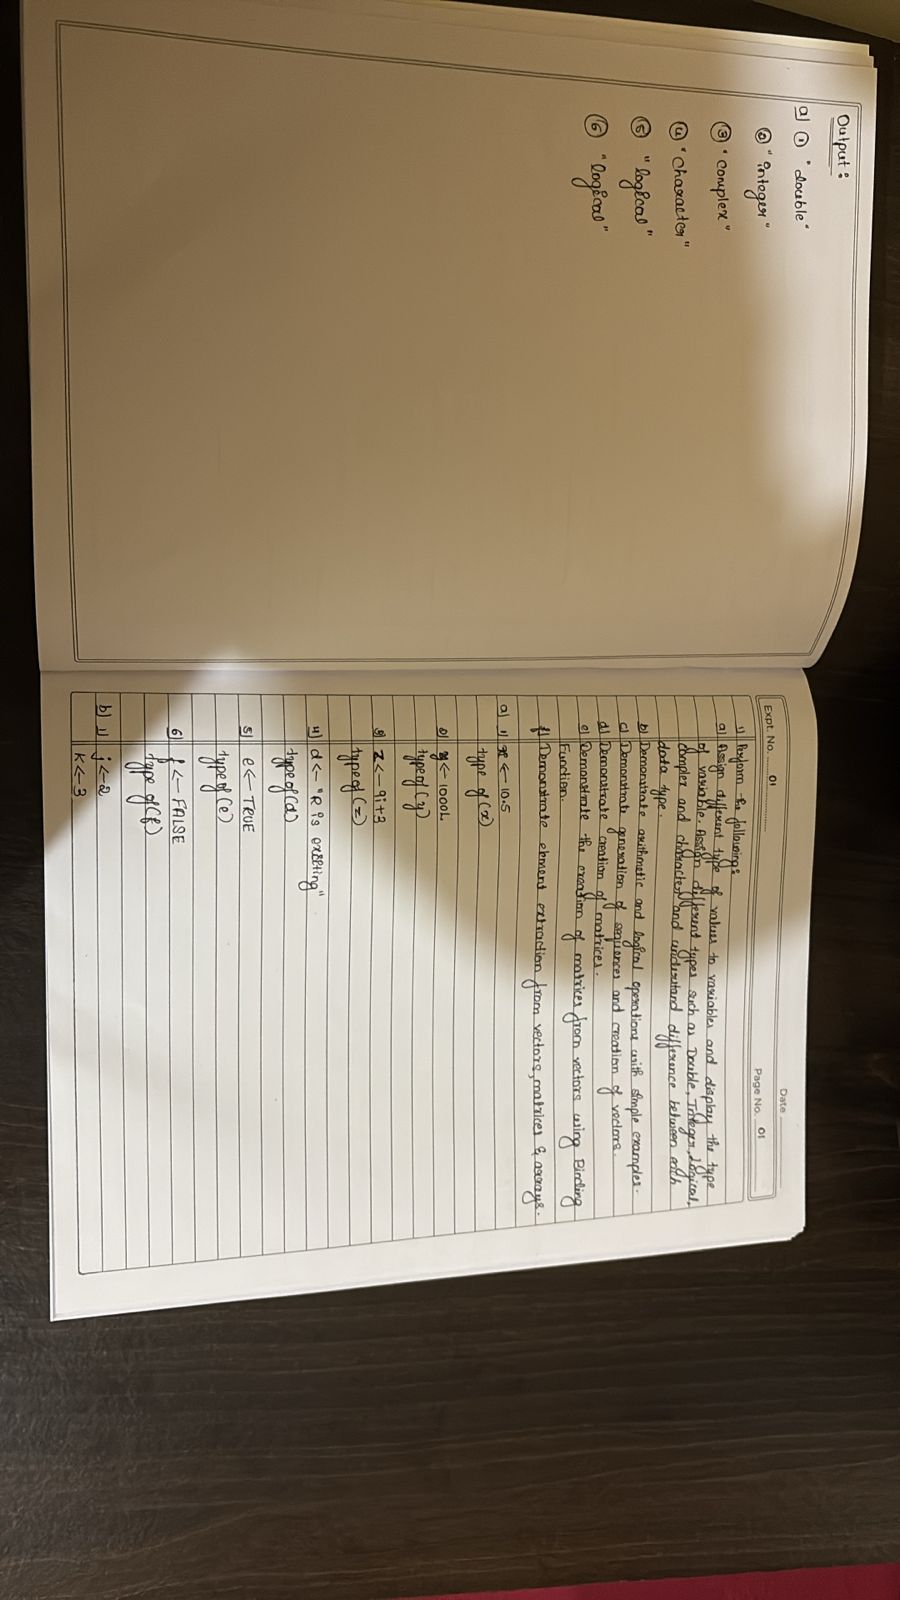 Output :
a) ① "double"
② "integer"
③ "complex"
④ "character"
⑤ "logical"
⑥ "logical"
Date
Expt. No. 01
Page No. 01
1) Perform the followings
a) Assign different type of values to variables and display the type
of variable. Assign different types such as Double, Integer, Logical,
complex and character and understand difference between each
data type.
b) Demonstrate arithmetic and logical operations with simple examples.
c) Demonstrate generation of sequences and creation of vectors.
d) Demonstrate creation of matrices.
e) Demonstrate the creation of matrices from vectors using Binding
Function.
f) Demonstrate element extraction from vectors, matrices & arrays.
a) 1) x <- 10.5
type of (x)
2) y <- 1000L
typeof (y)
3) z <- 9i+3
typeof (z)
4) d <- "R is exciting"
typeof(d)
5) e <- TRUE
typeof(e)
6) f <- FALSE
type of(f)
b) 1) j <- 2
k <- 3